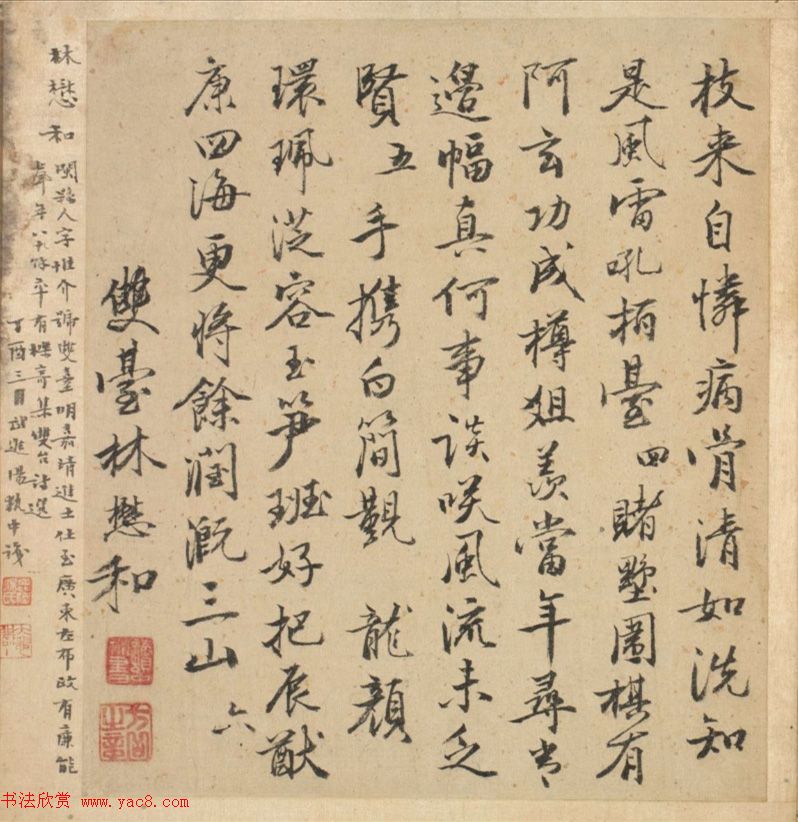 枝来自憐病骨清如洗知
是風雷吼栢臺 四 賭墅圍棋有
阿玄功成樽俎羨當年尋常
邊幅真何事談咲風流未乏
賢 五 手攜白簡覲 龍顏
環珮從容玉笋班好把辰猷
康四海更將餘潤溉三山 六
雙臺林懋和
林懋和 閩縣人字惟介號雙臺明嘉靖進士仕至廣東左布政有廉能
聲年八十餘卒有 集雙台詩選
丁酉三月武進湯 中識
书法欣赏 www.yac8.com